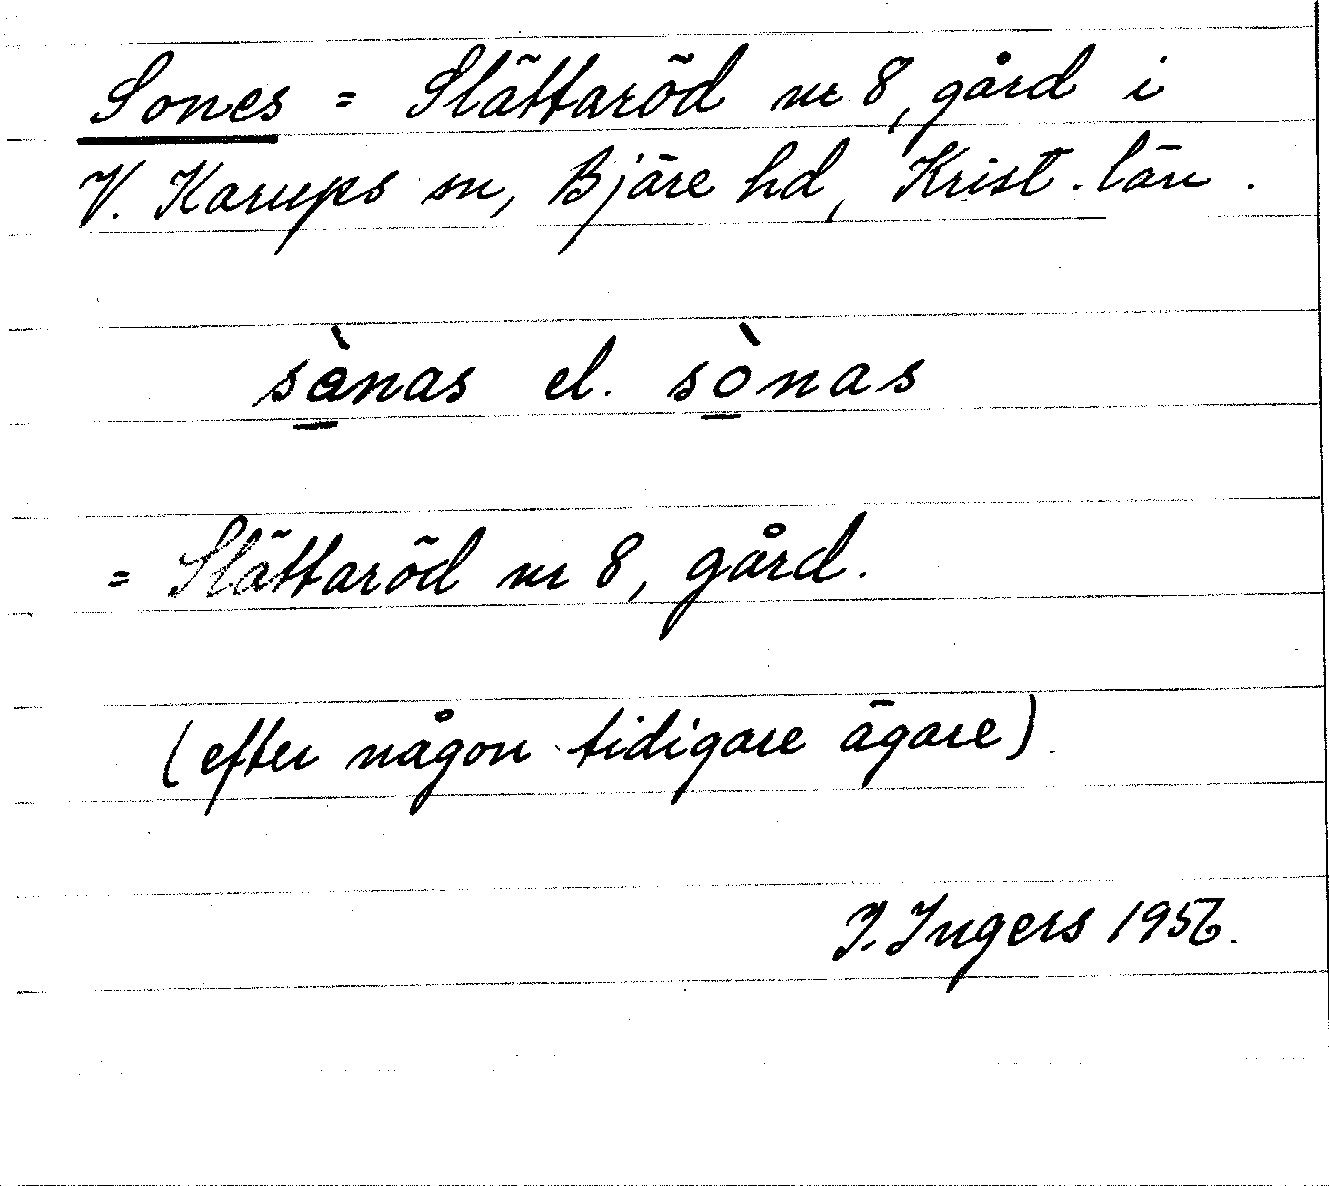 Sones = Slättaröd nr 8, gård i
V. Karups sn, Bjäre hd, Krist. län.
sànas el. sònas
= Slättaröd nr 8, gård.
(efter någon tidigare ägare).
I. Ingers 1956.